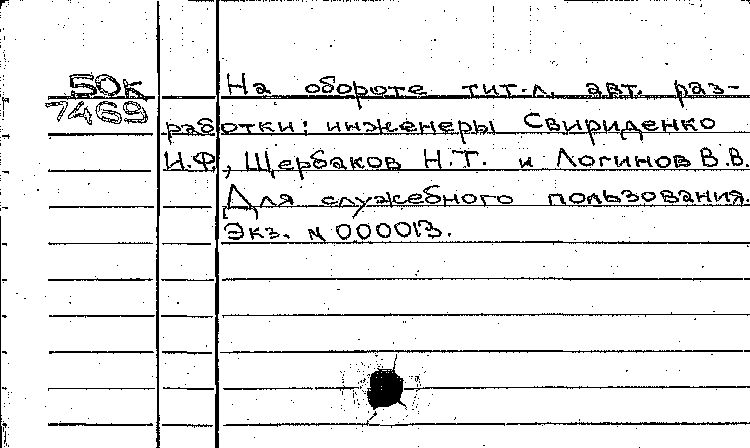 50К На обороте тит.л. авт. раз-
7469 работки: инженеры Свириденко
И.Ф., Щербаков Н.Т. и Логинов В.В.
Для служебного пользования.
Экз. № 000013.